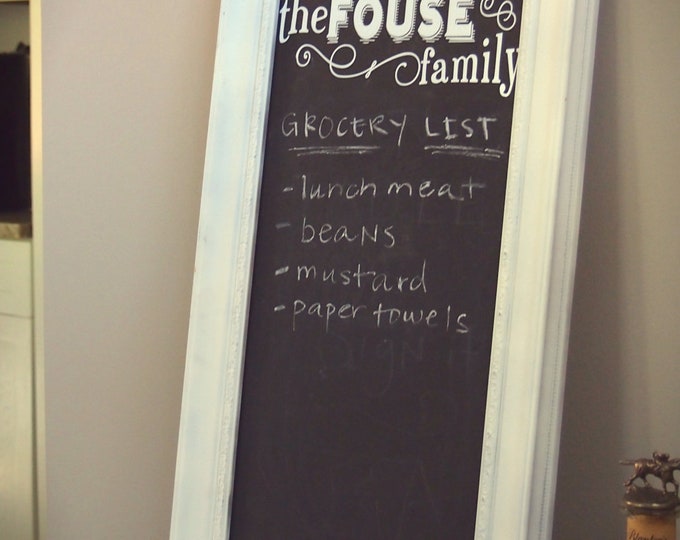 the FOUSE
family
GROCERY LIST
- lunch meat
- beans
- mustard
- paper towels